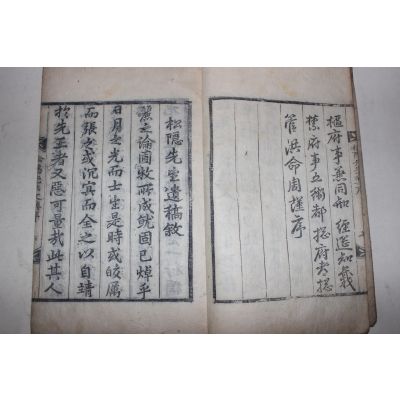 樞府事兼同知 經筵知義
禁府事五衛都 摠府都摠
管洪命周謹序
松隱先生遺稿敘
麗之論固牧所成就固已焯乎
日月之光而士生是時或皎厲
而張之或沉冥而全之以自靖
於先王者又惡可量哉此其人